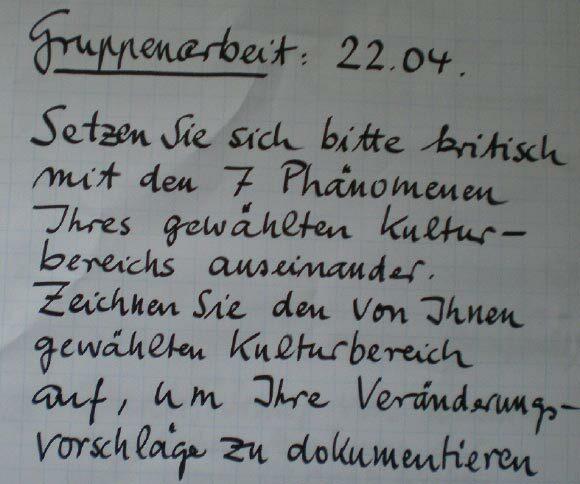 Gruppenarbeit: 22.04.
Setzen Sie sich bitte kritisch
mit den 7 Phänomenen
Ihres gewählten Kultur-
bereichs auseinander.
Zeichnen Sie den von Ihnen
gewählten Kulturbereich
auf, um Ihre Veränderungs-
vorschläge zu dokumentieren